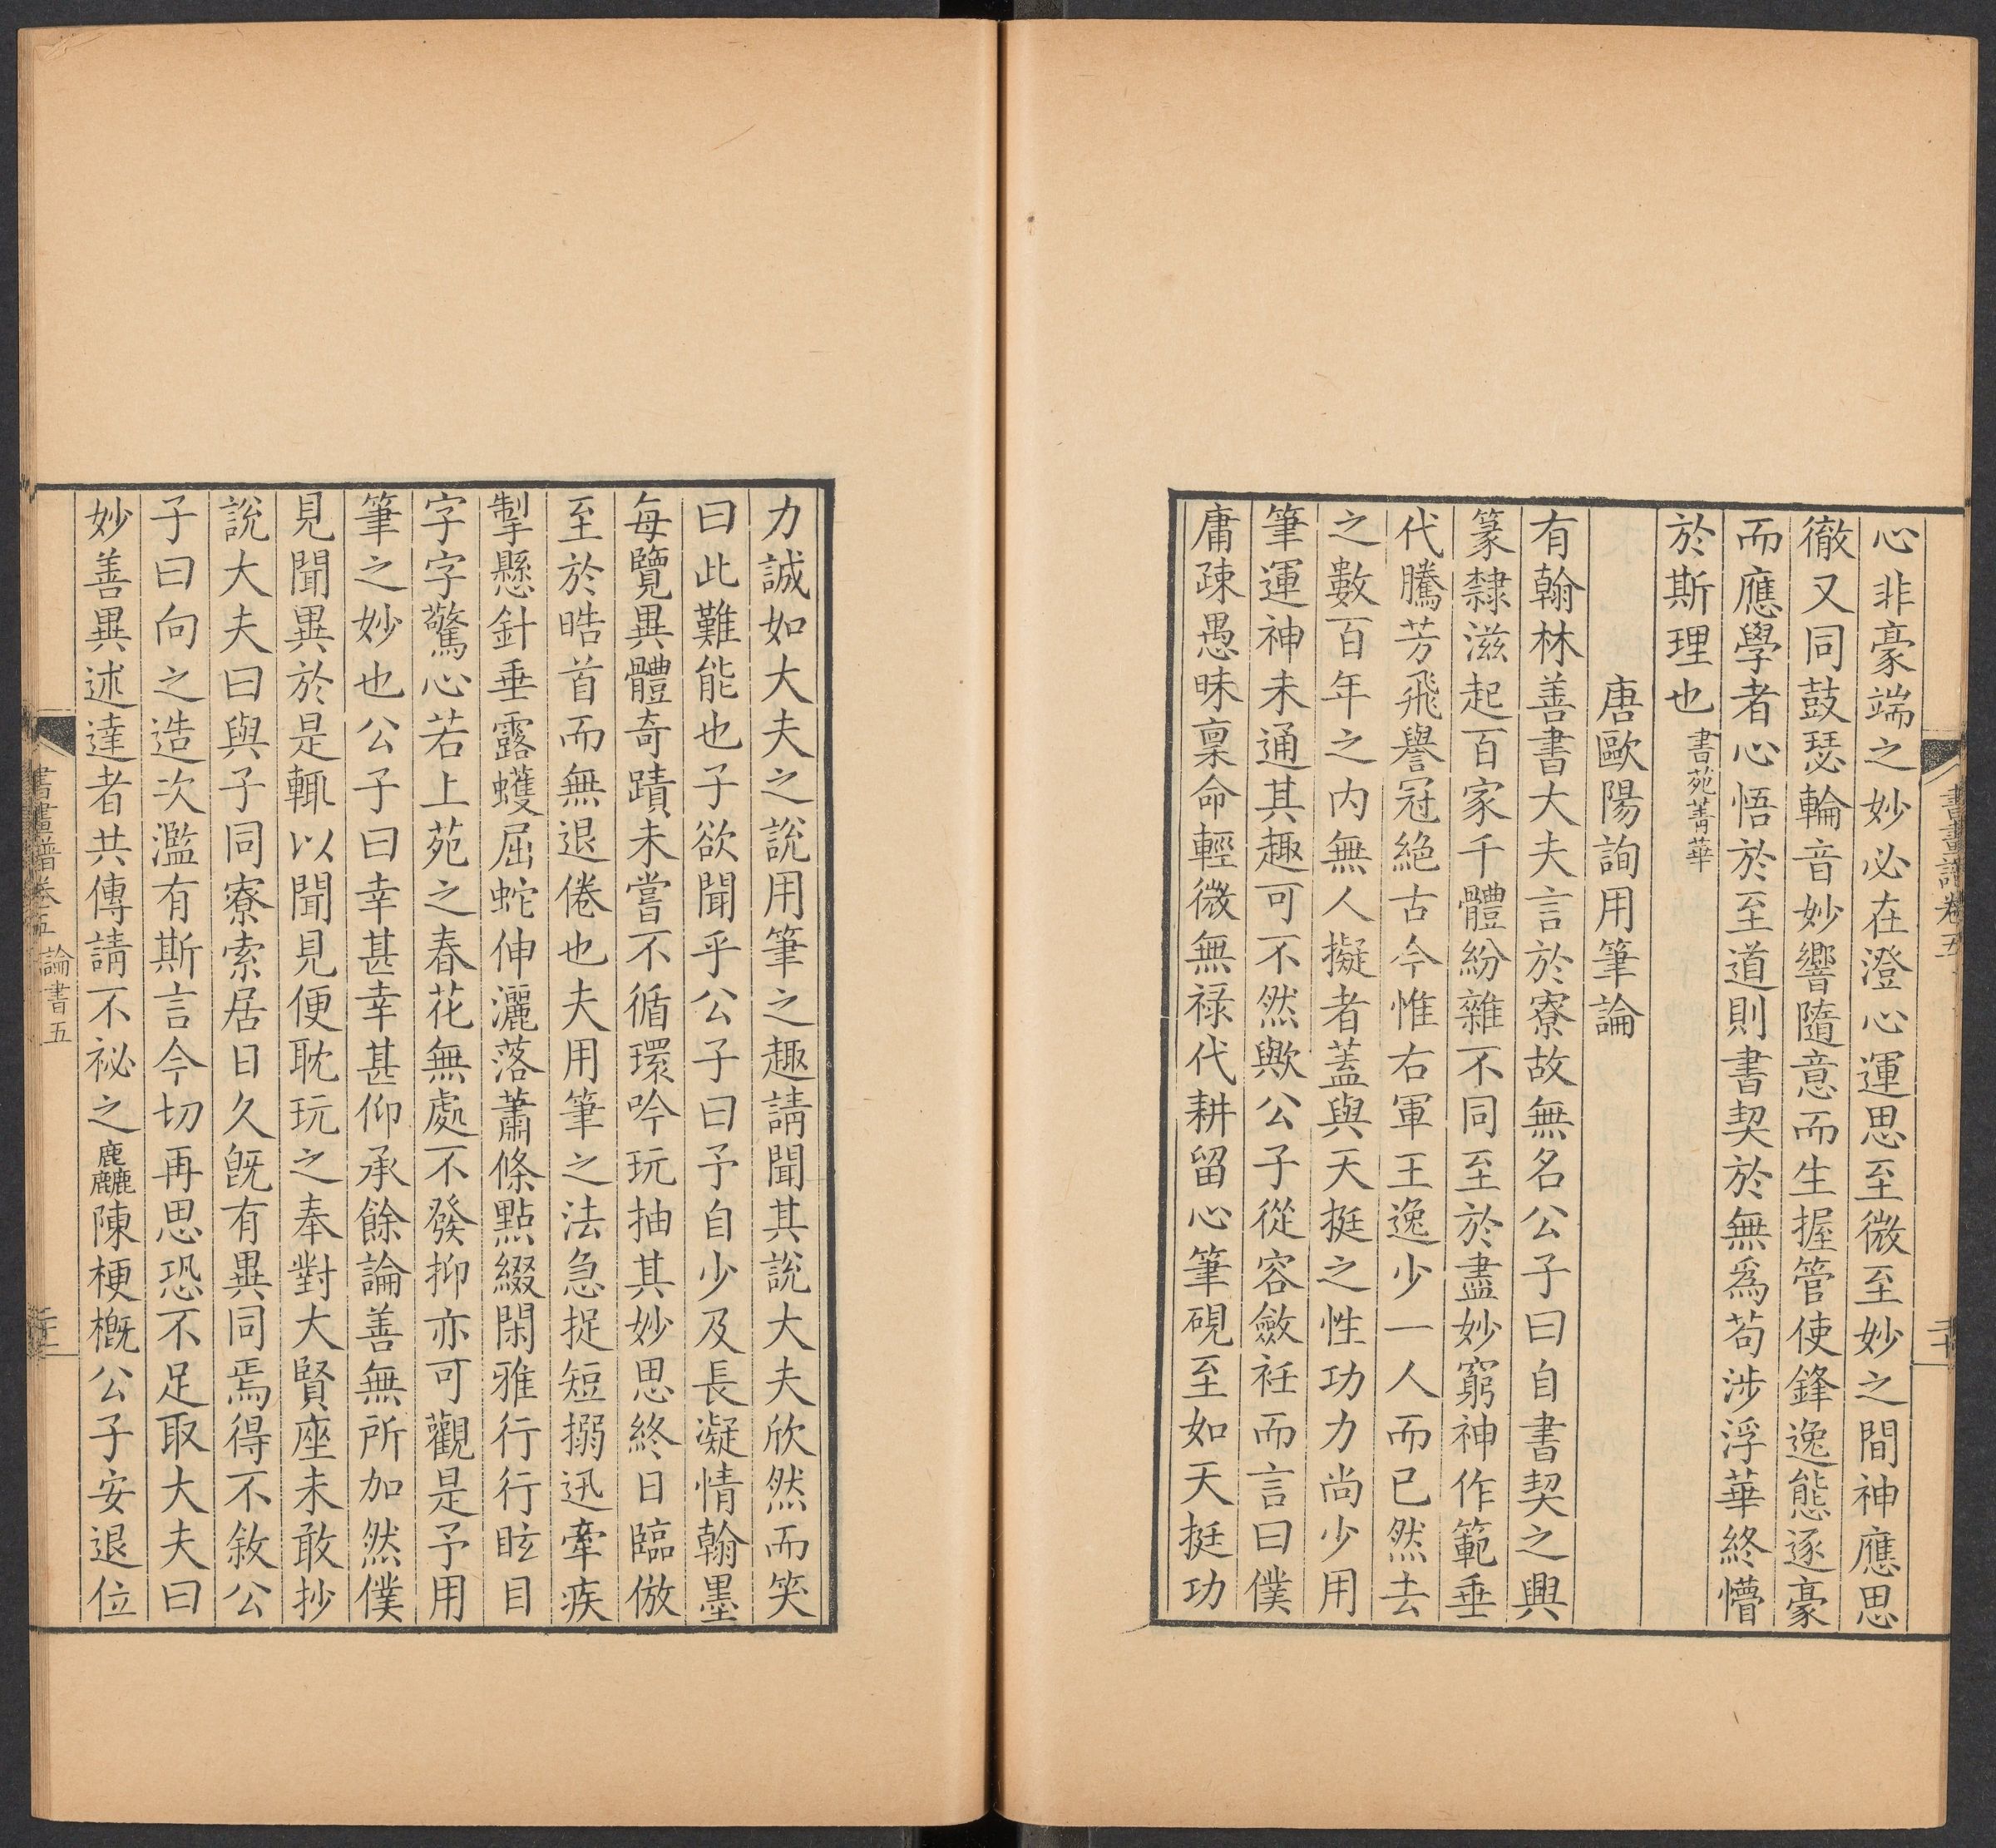 心非豪端之妙必在澄心運思至微至妙之間神應思
徹又同鼓瑟輪音妙響隨意而生握管使鋒逸態逐豪
而應學者心悟於至道則書契於無爲苟涉浮華終懵
於斯理也書苑菁華
唐歐陽詢用筆論
有翰林善書大夫言於寮故無名公子曰自書契之興
篆隸滋起百家千體紛雜不同至於盡妙窮神作範垂
代騰芳飛譽冠絕古今惟右軍王逸少一人而已然去
之數百年之內無人擬者蓋與天挺之性功力尚少用
筆運神未通其趣可不然歟公子從容斂衽而言曰僕
庸疎愚昧稟命輕微無祿代耕留心筆硯至如天挺功
書畫譜卷五
二十
力誠如大夫之說用筆之趣請聞其說大夫欣然而笑
曰此難能也子欲聞乎公子曰予自少及長凝情翰墨
每覽異體奇蹟未嘗不循環吟玩抽其妙思終日臨倣
至於晧首而無退倦也夫用筆之法急捉短搦迅牽疾
掣懸針垂露蠖屈蛇伸灑落蕭條點綴閑雅行行眩目
字字驚心若上苑之春花無處不發抑亦可觀是予用
筆之妙也公子曰幸甚幸甚仰承餘論善無所加然僕
見聞異於是輒以聞見便耽玩之奉對大賢座未敢抄
說大夫曰與子同寮索居日久旣有異同焉得不敘公
子曰向之造次濫有斯言今切再思恐不足取大夫曰
妙善異述達者共傳請不祕之麤陳梗概公子安退位
書畫譜卷五 論書五